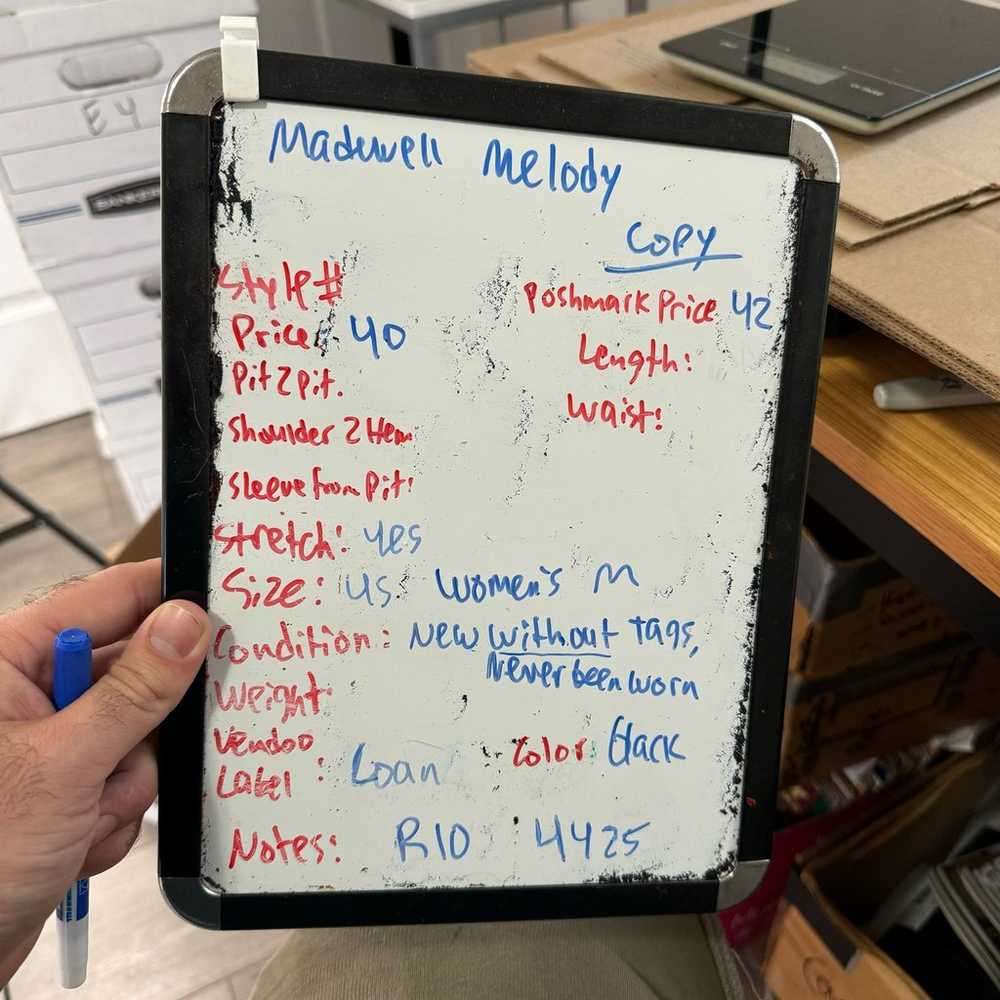 Madewell Melody
COPY
Style#
Poshmark Price 42
Price: 40
Length:
Pit 2 Pit.
Waist:
Shoulder 2 Hem
Sleeve from Pit:
Stretch: yes
Size: US Women's M
Condition: New without Tags,
Never been worn
Weight:
Vendoo
Label: Loan
Color: Black
Notes: R10 4425
E4